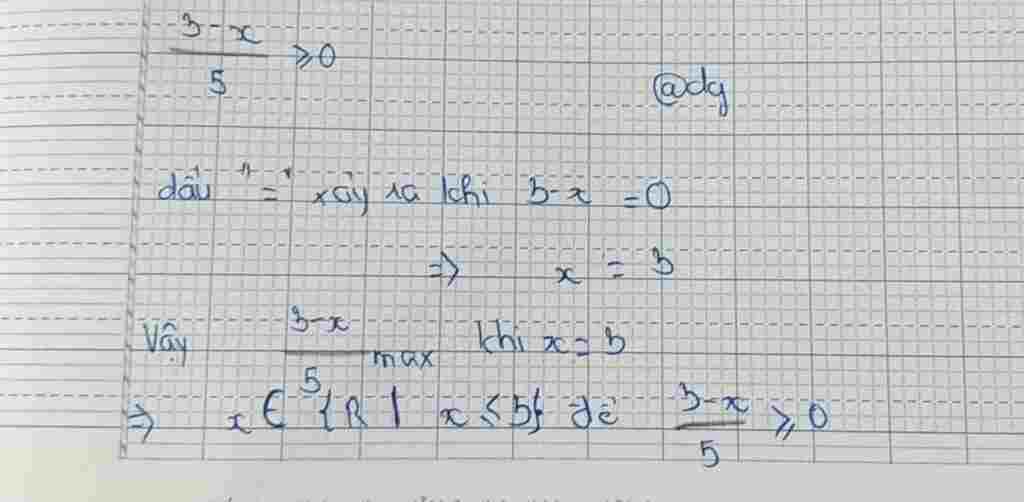 3-x/5 ⩾0
@dg
dấu "=" xảy ra khi 3-x =0
=> x = 3
Vậy 3-x/5 max khi x=3
=> x ∈ {R | x ≤ 3} để 3-x/5 ⩾ 0